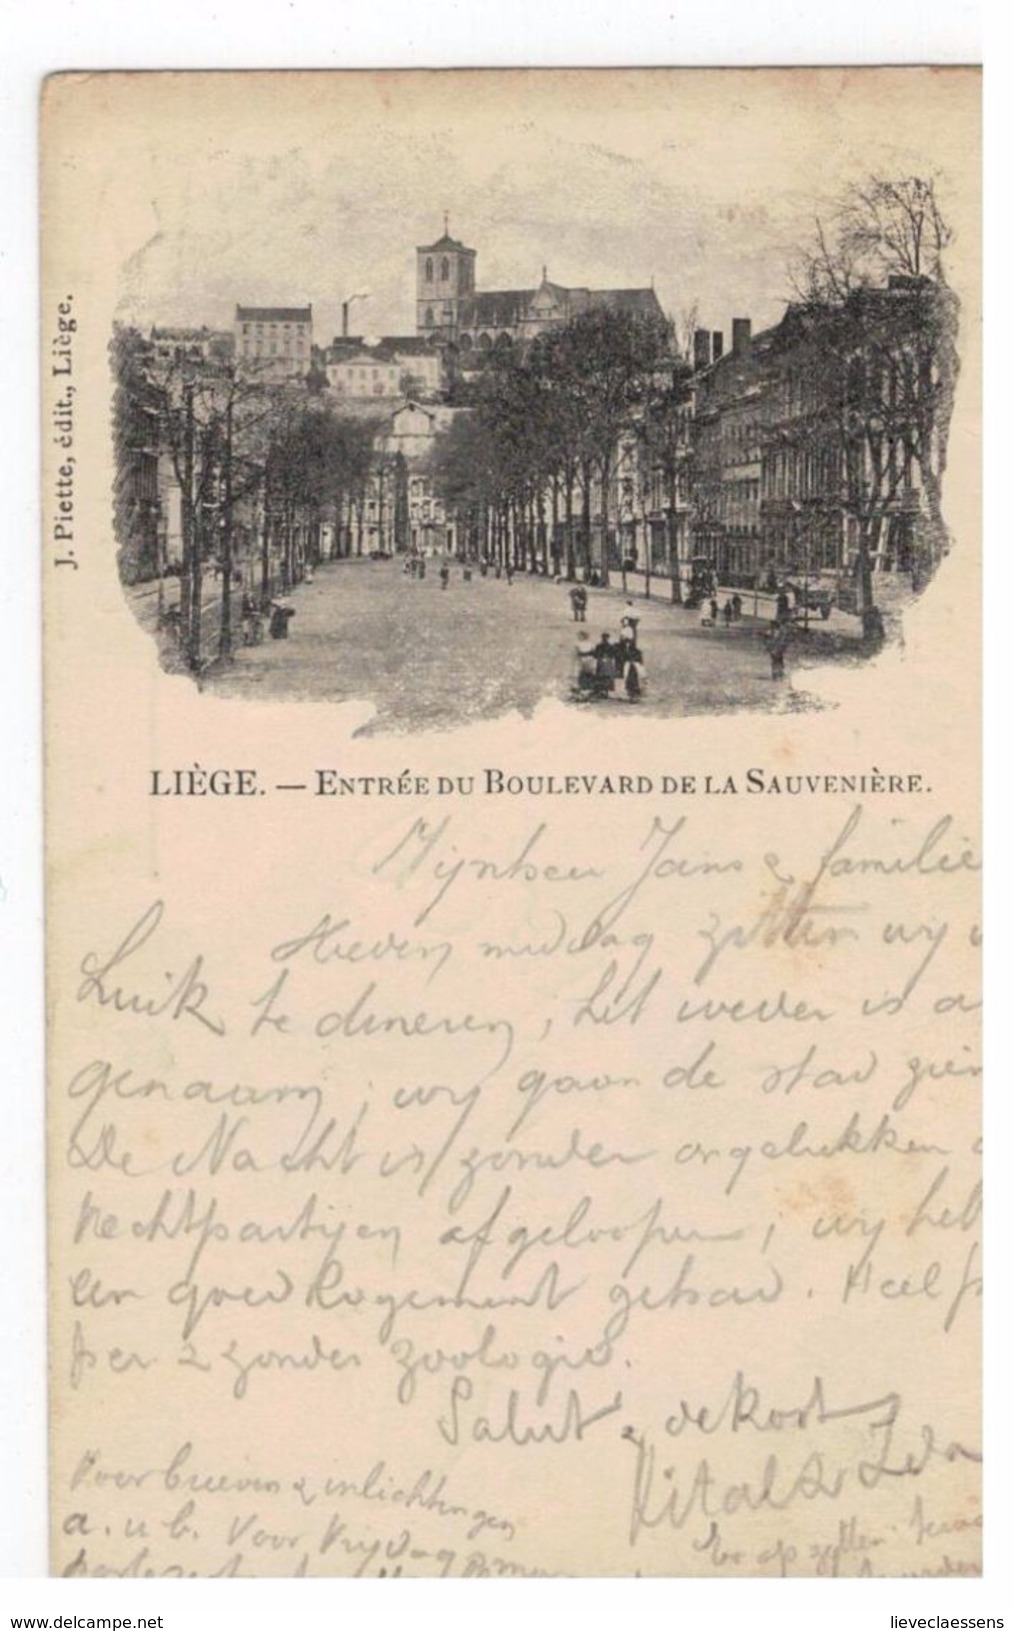 J. Piette, édit., Liège.
LIÈGE. — ENTRÉE DU BOULEVARD DE LA SAUVENIÈRE.
Mijnheer Jans & familie
middag zitten wij
Luik te dineren, het weder is
genaam; wij gaan de stad zien
De Nacht is zonder ongelukken
afgeloopen; wij heb
een goed logement gehad. Heel
per & zonder zoologie.
Salut & dekort
Vital & Ida
Voor brieven & inlichtingen
a. u b. Voor Vrijdag
op zetten
www.delcampe.net
lieveclaessens